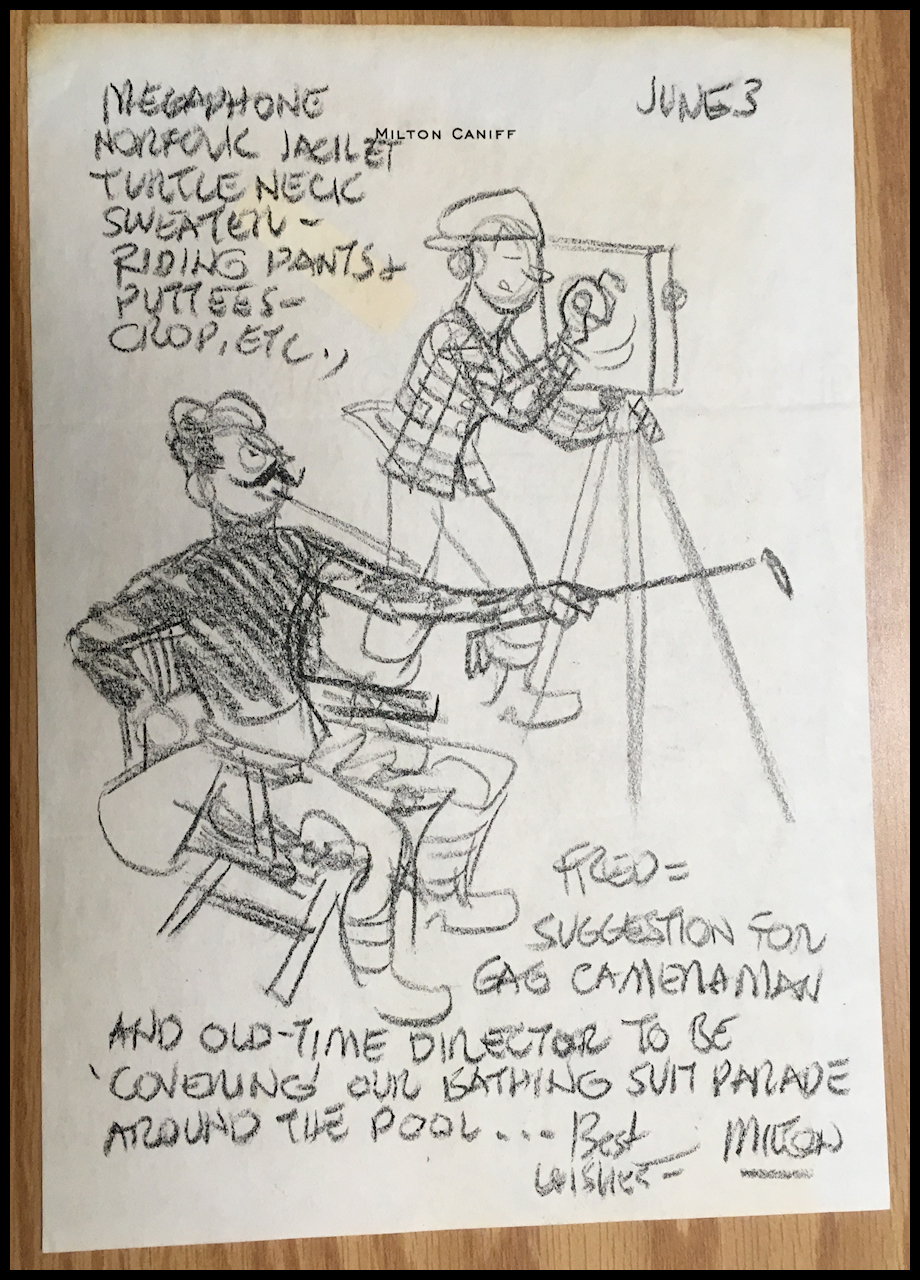 JUNE 3
MILTON CANIFF
MEGAPHONE
NORFOLK JACKET
TURTLE NECK
SWEATER -
RIDING PANTS &
PUTTEES -
CROP, ETC.,
FRED =
SUGGESTION FOR
GAG CAMERAMAN
AND OLD-TIME DIRECTOR TO BE
'COVERING' OUR BATHING SUIT PARADE
AROUND THE POOL ... Best
WISHES - MILTON